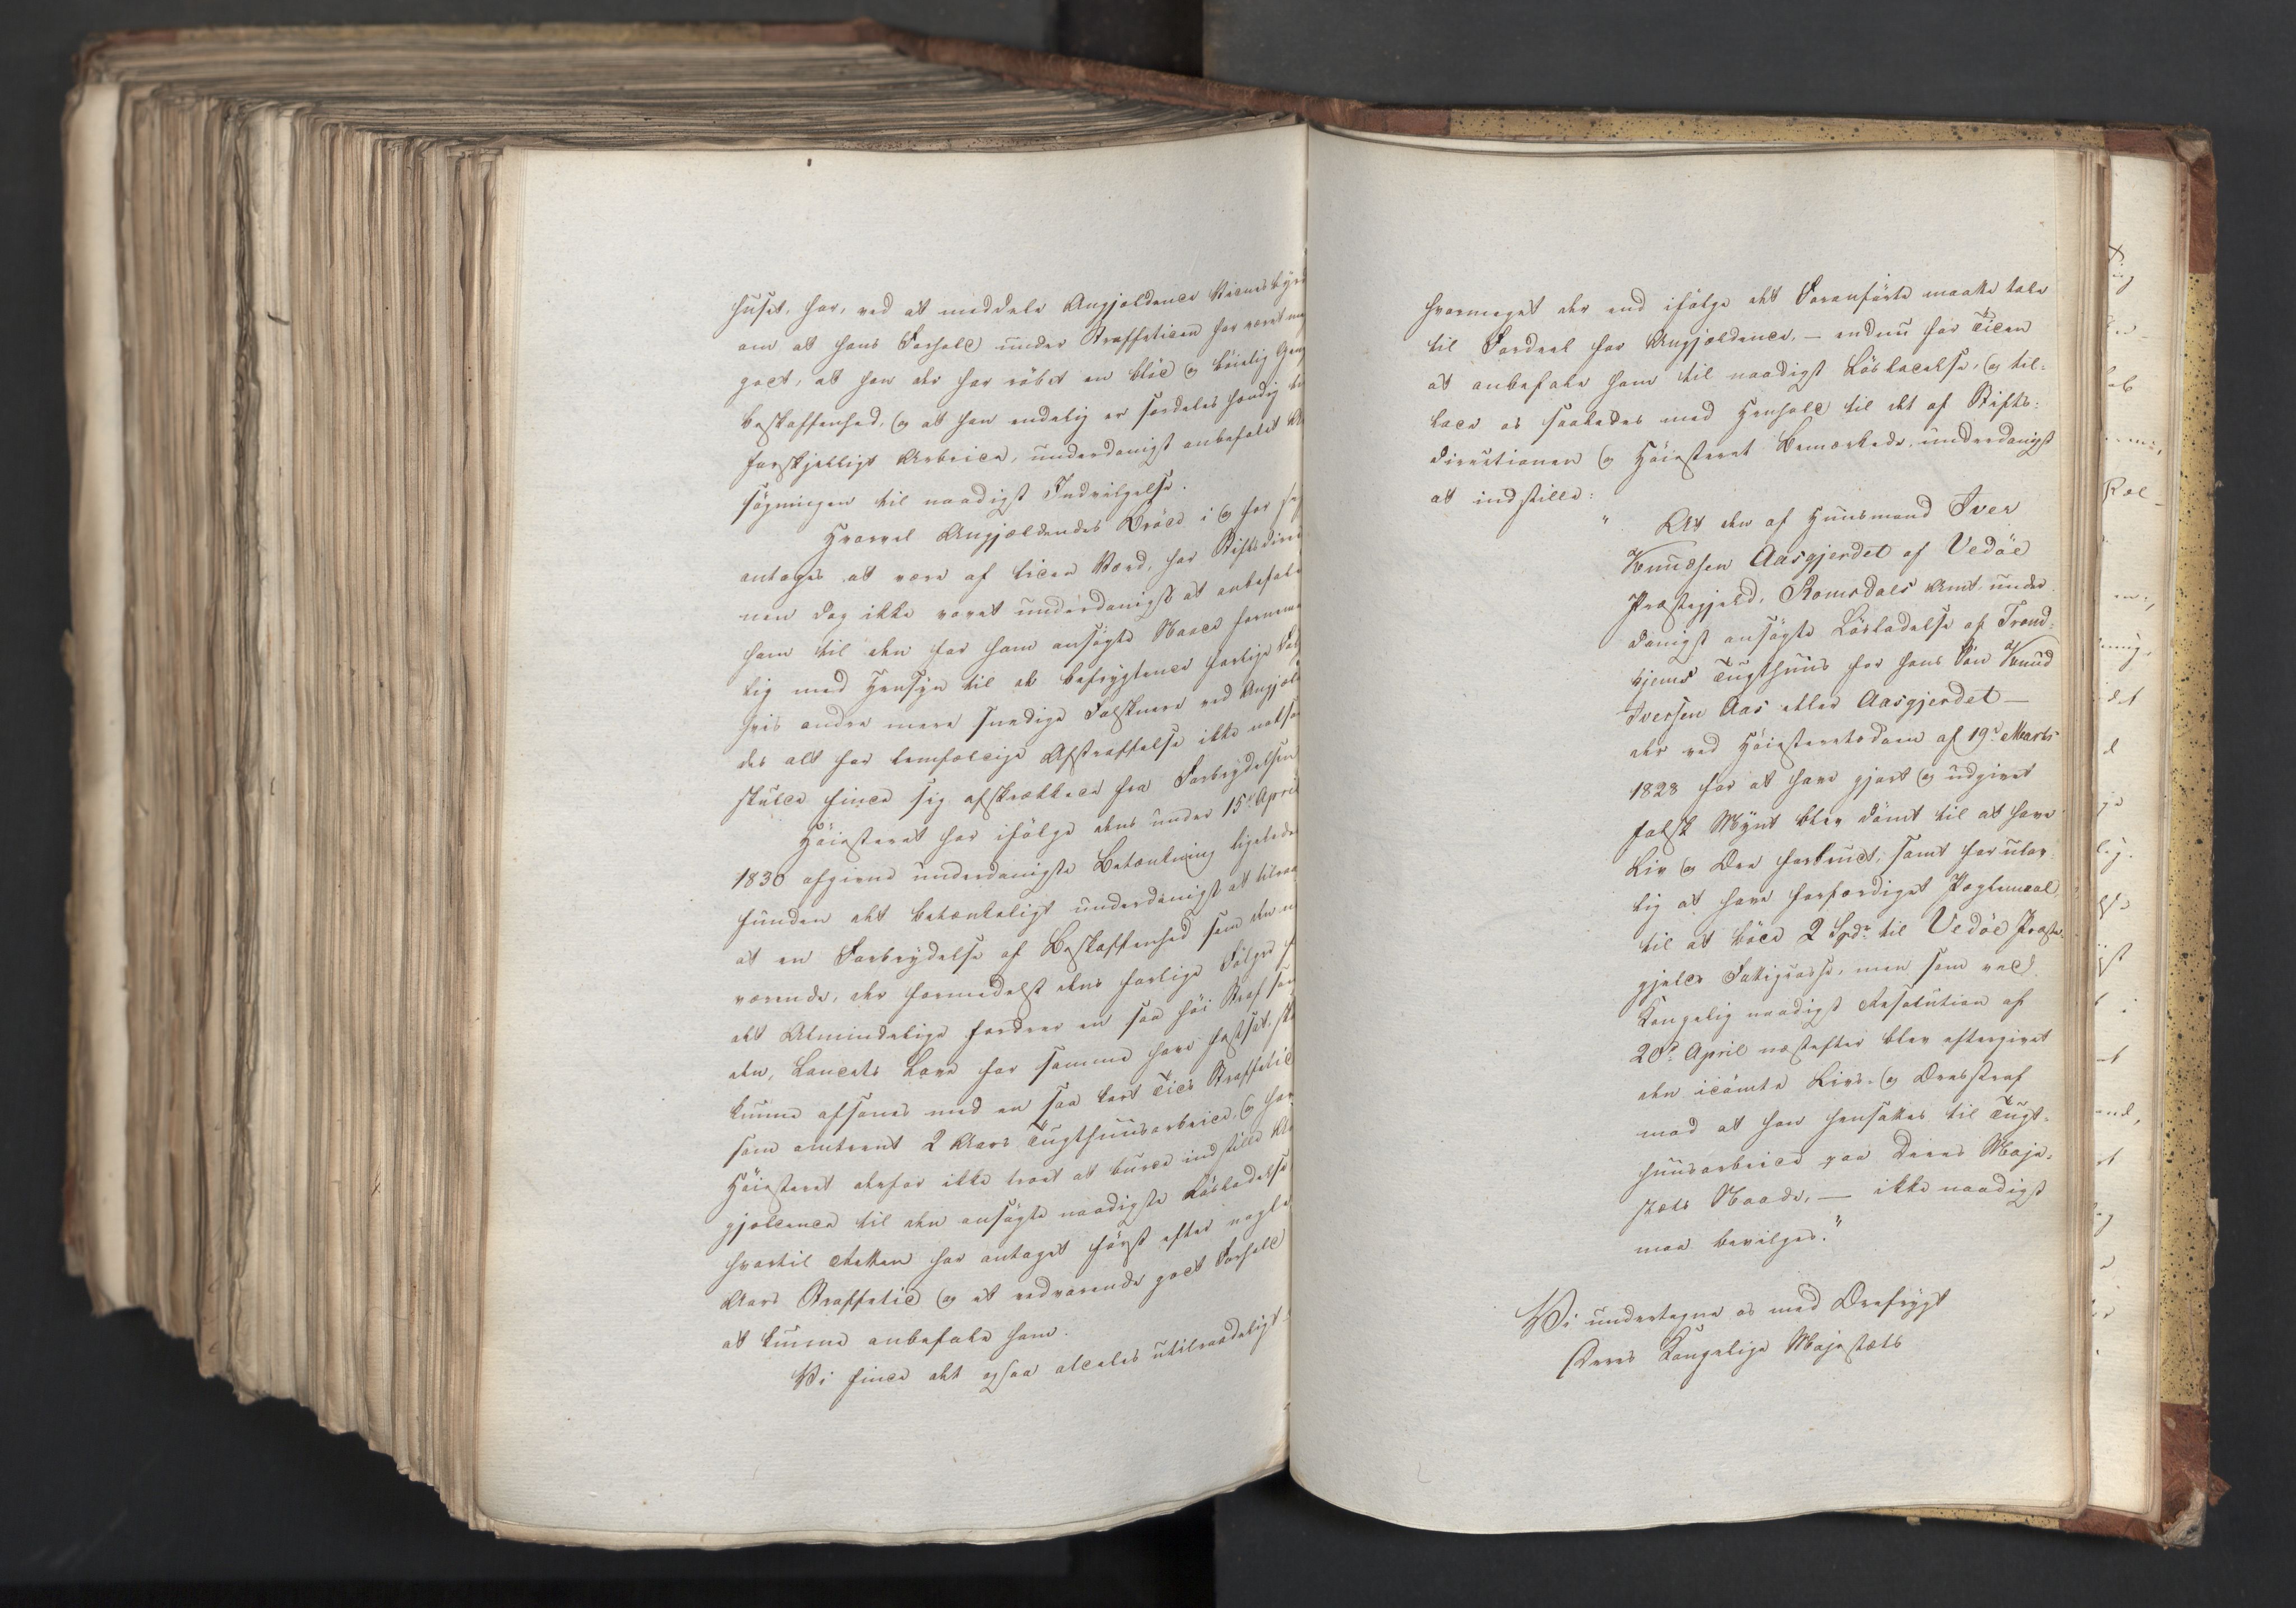 huset, har, ved at meddele Angjældende Vidnesbyrd
om at hans Forhold under Straffetiden har været me
godt, at han der har röbet en blid og böielig Gem
beskaffenhed, og at han endelig er særdeles hændig til
forskjelligt Arbeide, underdanigst anbefalet An
sögningen til naadigst Indvilgelse.
Hvorvel Angjældendes Bröde i og for sig
antages at være af liden Værd, har Stiftsdirec
nen dog ikke vovet underdanigst at anbefale
ham til den for ham ansögte Naade fornemme
lig med Hensyn til de befrygtende farlige Föl
hvis andre mere snedige Falsknere ved Angjæl
des alt for lemfældige Afstraffelse ikke nok som
skulde finde sig afskrækkede fra Forbrydelsen
Höiesteret har ifölge dens under 15de April
1830 afgivne underdanigste Betænkning ligeledes
funden det betænkeligt underdanigst at tilraa
at en Forbrydelse af Beskaffenhed som den nu
værende, der formedelst dens farlige Fölger f
det Almindelige fordrer en saa höi Straf som
den, Landets Love for samme have fastsat, sk
kunne afsones med en saa kort Tids Straffetid
som omtrent 2 Aars Tugthuusarbeide, og har
Höiesteret derfor ikke troet at burde indstille An
gjældende til den ansögte naadigste Löslladelse
hvortil Retten har antaget först efter nogle
Aars Straffetid og et vedvarende godt Forhold
at kunne anbefale ham.
Vi finde det ogsaa aldeles utilraadeligt
hvormeget der end ifölge det Foranförte maatte tale
til Fordeel for Angjældende, — endnu for Tiden
at anbefale ham til naadigst Lösladelse, og til-
lade os saaledes med Henhold til det af Stifts-
directionen og Höiesteret Bemærkede underdanigst
at indstille:
" At den af Huusmand Iver
Knudsen Aasgjerdet af Vedöe
Præstegjeld, Romsdals Amt under
danigst ansögte Lösladelse af Trond-
hjems Tugthuus for hans Sön Knud
Iversen Aas eller Aasgjerdet —
der ved Höiesteretsdom af 19d Marts
1828 for at have gjort og udgivet
falsk Mynt blev dömt til at have
Liv og Ære forbrudt, samt for ulov-
lig at have forfærdiget Pæglemaal,
til at böde 2 Spdr til Vedöe Præste-
gjelds Fattigcasse, men som ved
Kongelig naadigst Resolution af
20d April næstefter blev eftergivet
den idömte Livs- og Æresstraf
mod at han hensattes til Tugt-
huusarbeide paa Deres Maje-
stæts Naade, — ikke naadigst
maa bevilges."
Vi undertegne os med Ærefrygt
Deres Kongelige Majestæts